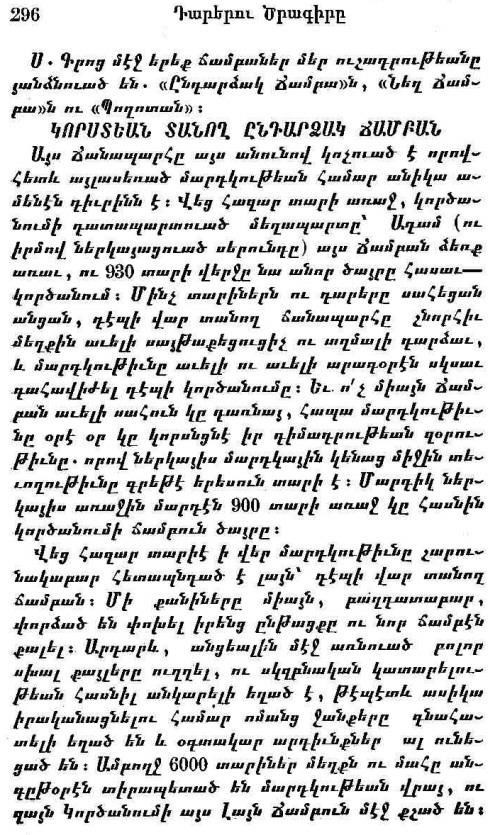 296 Դարերու Ծրագիրը
Ս. Գրոց մէջ երեք ճամբաներ մեր ուշադրութեանը
յանձնուած են. «Ընդարձակ Ճամբա»ն, «Նեղ Ճամ-
բա»ն ու «Պողոտան»։
ԿՈՐՍՏԵԱՆ ՏԱՆՈՂ ԸՆԴԱՐՁԱԿ ՃԱՄԲԱՆ
Այս Ճանապարհը այս անունով կոչուած է որով-
հետև այլասեռած մարդկութեան համար անիկա ա-
մենէն դիւրինն է։ Վեց հազար տարի առաջ, կործա-
նումի դատապարտուած մեղապարտը՝ Ադամ (ու
իրմով ներկայացուած սերունդը) այս Ճամբան ձեռք
առաւ, ու 930 տարի վերջը նա անոր ծայրը հասաւ—
կործանում։ Մինչ տարիներն ու դարերը սահեցան
անցան, դէպի վար տանող ճանապարհը շնորհիւ
մեղքին աւելի սայթաքեցուցիչ ու աղմալի դարձաւ,
և մարդկութիւնը աւելի ու աւելի արագօրէն սկսաւ
գահավիժել դէպի կործանումը։ Եւ ո՛չ միայն Ճամ-
բան աւելի սահուն կը դառնայ, հապա մարդկութիւ-
նը օրէ օր կը կորսնցնէ իր դիմադրութեան զօրու-
թիւնը. որով ներկայիս մարդկային կենաց միջին տե-
ւողութիւնը գրեթէ երեսուն տարի է։ Մարդիկ ներ-
կայիս առաջին մարդէն 900 տարի առաջ կը հասնին
կործանումի ճամբուն ծայրը։
Վեց հազար տարիէ ի վեր մարդկութիւնը շարու-
նակաբար հետապնդած է լայն՝ դէպի վար տանող
ճամբան։ Մի քանիները միայն, բաղդատաբար,
փորձած են փոխել իրենց ընթացքը ու նոր ճամբէն
քալել։ Արդարև, անցեալին մէջ առնուած բոլոր
սխալ քայլերը ուղղել, ու սկզբնական կատարելու-
թեան հասնիլ անկարելի եղած է, թէպէտև ասիկա
իրականացնելու համար ոմանց ջանքերը գնահա-
տելի եղած են և օգտակար արդիւնքներ ալ ունե-
ցած են։ Ամբողջ 6000 տարիներ մեղքն ու մահը ան-
գըթօրէն տիրապետած են մարդկութեան վրայ, ու
զայն Կործանումի այս Լայն Ճամբուն մէջ քշած են։